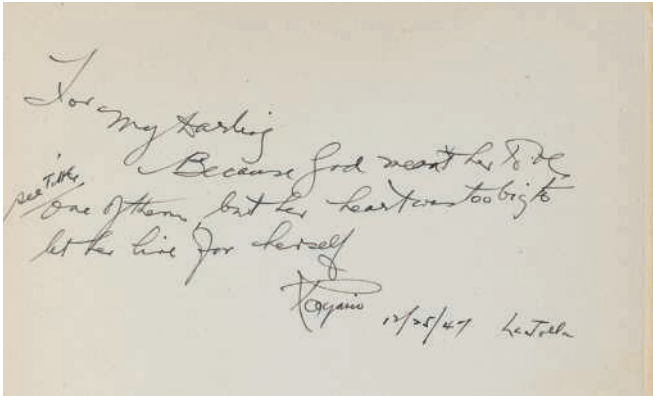 For
my darling
Because God meant her to be
see title
one of them, but her heart was too big to
let her live for herself
12/25/47 La Jolla